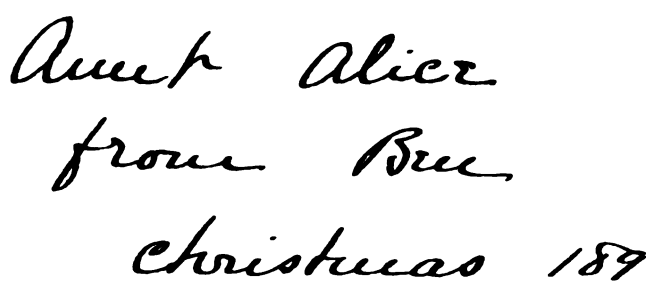 Aunt Alice
from Ben
christmas 189